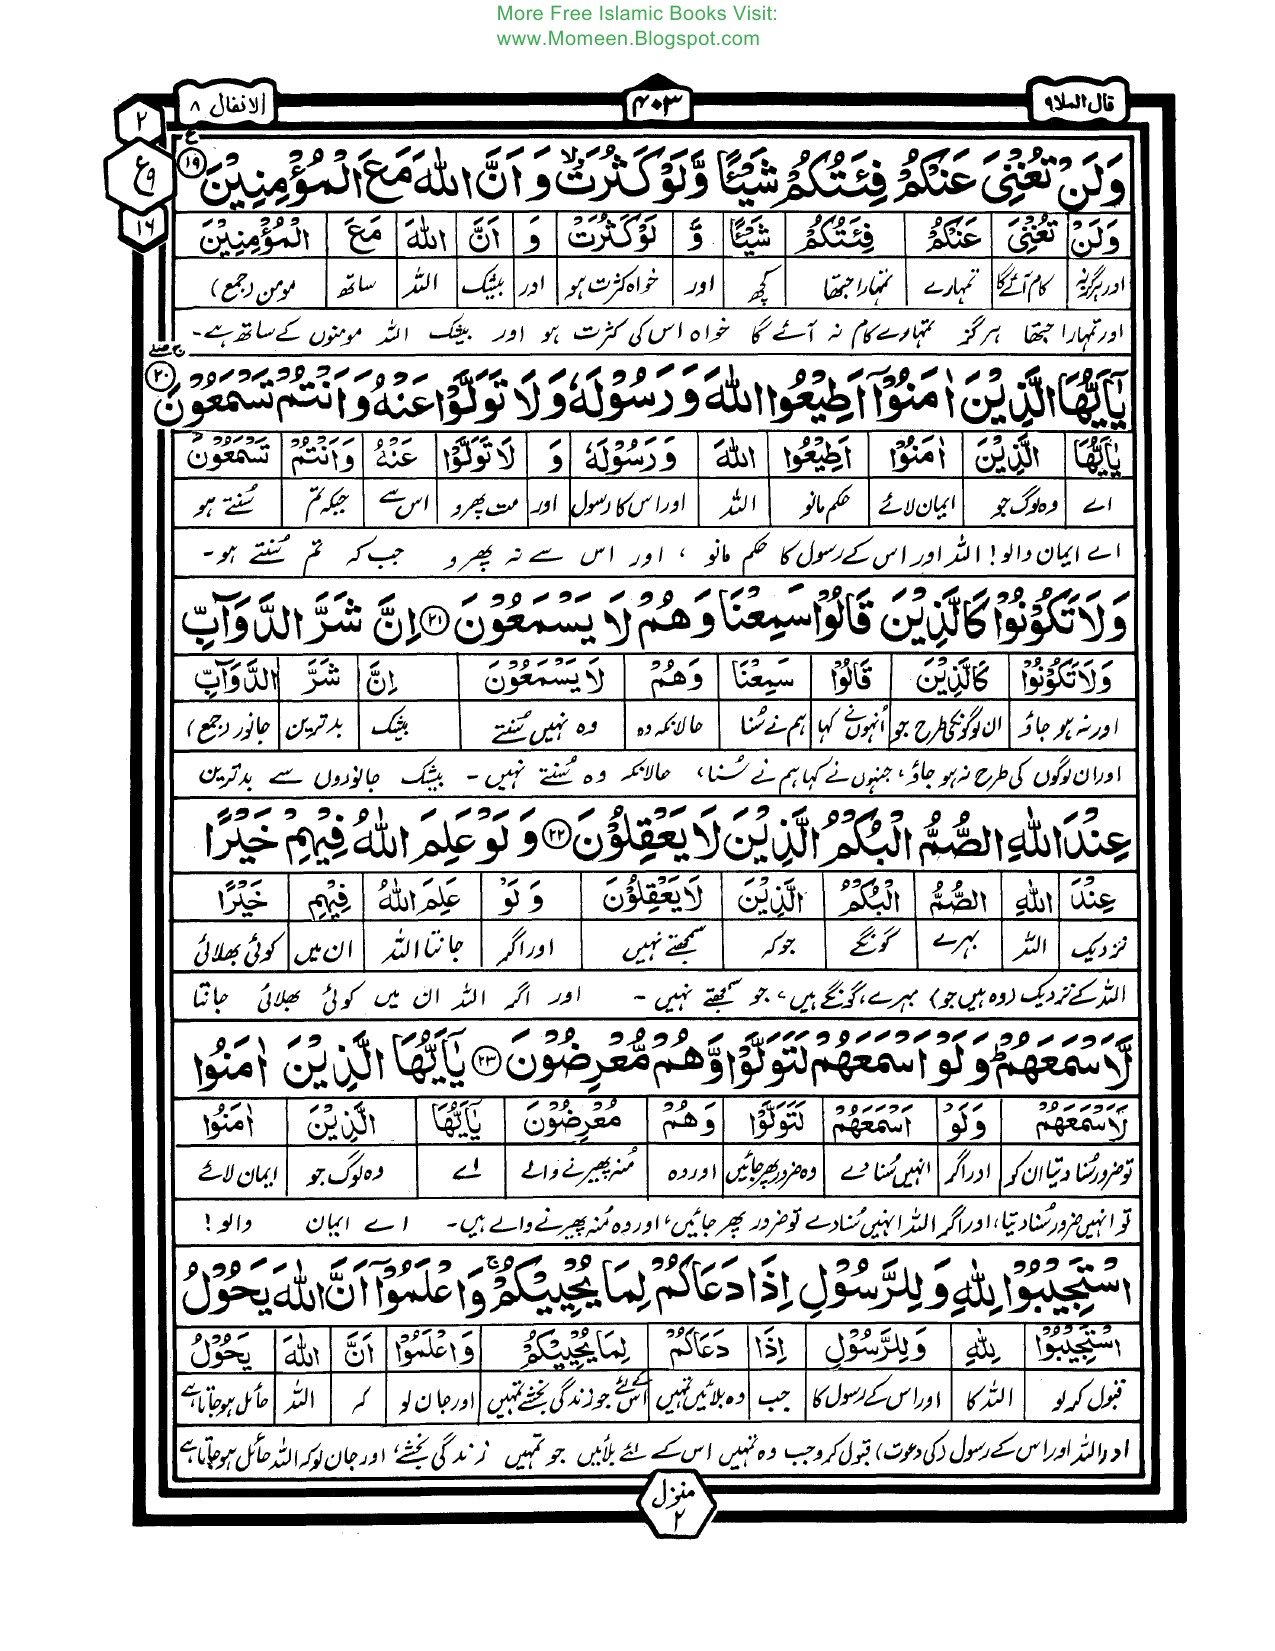 More Free Islamic Books Visit:
www.Momeen.Blogspot.com
قال الملا ۹
۴۰۳
الانفال ۸
۲
ع
۹
۱۶
وَلَنْ تُغْنِيَ عَنْكُمْ فِئَتُكُمْ شَيْئًا وَّلَوْ كَثُرَتْ ۙ وَ اَنَّ اللّٰهَ مَعَ الْمُؤْمِنِيْنَ ۱۹ ع
وَلَنْ تُغْنِيَ عَنْكُمْ فِئَتُكُمْ شَيْئًا وَّ لَوْ كَثُرَتْ وَ اَنَّ اللّٰهَ مَعَ الْمُؤْمِنِيْنَ
اور ہرگز نہ کام آئے گا تمہارے تمہارا جتھا کچھ اور خواہ کثرت ہو اور بیشک اللہ ساتھ مومن (جمع)
اور تمہارا جتھا ہرگز تمہارے کام نہ آئے گا خواہ اس کی کثرت ہو اور بیشک اللہ مومنوں کے ساتھ ہے۔
يٰۤاَيُّهَا الَّذِيْنَ اٰمَنُوْۤا اَطِيْعُوا اللّٰهَ وَ رَسُوْلَهٗ وَ لَا تَوَلَّوْا عَنْهُ وَ اَنْتُمْ تَسْمَعُوْنَ ۲۰
يٰۤاَيُّهَا الَّذِيْنَ اٰمَنُوْۤا اَطِيْعُوا اللّٰهَ وَ رَسُوْلَهٗ وَ لَا تَوَلَّوْا عَنْهُ وَ اَنْتُمْ تَسْمَعُوْنَ
اے وہ لوگ جو ایمان لائے حکم مانو اللہ اور اس کا رسول اور مت پھرو اس سے جبکہ تم سُنتے ہو
اے ایمان والو! اللہ اور اس کے رسول کا حکم مانو ، اور اس سے نہ پھرو جب کہ تم سُنتے ہو۔
وَلَا تَكُوْنُوْا كَالَّذِيْنَ قَالُوْا سَمِعْنَا وَهُمْ لَا يَسْمَعُوْنَ ۲۱ اِنَّ شَرَّ الدَّوَآبِّ
وَلَا تَكُوْنُوْا كَالَّذِيْنَ قَالُوْا سَمِعْنَا وَهُمْ لَا يَسْمَعُوْنَ اِنَّ شَرَّ الدَّوَآبِّ
اور نہ ہو جاؤ ان لوگوں کی طرح جو اُنہوں نے کہا ہم نے سُنا حالانکہ وہ وہ نہیں سُنتے بیشک بدترین جانور (جمع)
اور ان لوگوں کی طرح نہ ہو جاؤ، جنہوں نے کہا ہم نے سُنا، حالانکہ وہ سُنتے نہیں۔ بیشک جانوروں سے بدترین
عِنْدَ اللّٰهِ الصُّمُّ الْبُكْمُ الَّذِيْنَ لَا يَعْقِلُوْنَ ۲۲ وَ لَوْ عَلِمَ اللّٰهُ فِيْهِمْ خَيْرًا
عِنْدَ اللّٰهِ الصُّمُّ الْبُكْمُ الَّذِيْنَ لَا يَعْقِلُوْنَ وَ لَوْ عَلِمَ اللّٰهُ فِيْهِمْ خَيْرًا
نزدیک اللہ بہرے گونگے جو کہ سمجھتے نہیں اور اگر جانتا اللہ ان میں کوئی بھلائی
اللہ کے نزدیک (وہ ہیں جو) بہرے، گونگے ہیں، جو سمجھتے نہیں۔ اور اگر اللہ ان میں کوئی بھلائی جانتا
لَّاَسْمَعَهُمْ ؕ وَ لَوْ اَسْمَعَهُمْ لَتَوَلَّوْا وَّهُمْ مُّعْرِضُوْنَ ۲۳ يٰۤاَيُّهَا الَّذِيْنَ اٰمَنُوا
لَاَسْمَعَهُمْ وَلَوْ اَسْمَعَهُمْ لَتَوَلَّوْا وَهُمْ مُعْرِضُوْنَ يٰۤاَيُّهَا الَّذِيْنَ اٰمَنُوا
تو ضرور سُنا دیتا ان کو اور اگر انہیں سُنا دے وہ ضرور پھر جائیں اور وہ مُنہ پھیرنے والے اے وہ لوگ جو ایمان لائے
تو انہیں ضرور سُنا دیتا، اور اگر اللہ انہیں سُنا دے تو ضرور پھر جائیں، اور وہ مُنہ پھیرنے والے ہیں۔ اے ایمان والو!
اسْتَجِيْبُوْا لِلّٰهِ وَ لِلرَّسُوْلِ اِذَا دَعَاكُمْ لِمَا يُحْيِيْكُمْ ۚ وَ اعْلَمُوْۤا اَنَّ اللّٰهَ يَحُوْلُ
اسْتَجِيْبُوْا لِلّٰهِ وَ لِلرَّسُوْلِ اِذَا دَعَاكُمْ لِمَا يُحْيِيْكُمْ وَ اعْلَمُوْۤا اَنَّ اللّٰهَ يَحُوْلُ
قبول کر لو اللہ کا اور اس کے رسول کا جب وہ بلائیں تمہیں اس کے لئے جو زندگی بخشے تمہیں اور جان لو کہ اللہ حائل ہو جاتا ہے
اور اللہ اور اس کے رسول (کی دعوت) قبول کرو جب وہ تمہیں اس کے لئے بلائیں جو تمہیں زندگی بخشے، اور جان لو کہ اللہ حائل ہو جاتا ہے
منزل
۲